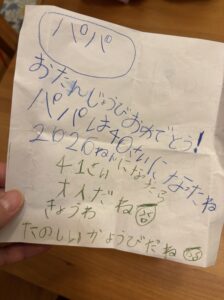 パパ
おたんじょうびおめでとう!
パパは40さいになたね
2020ねんになたら
41さい
大人だ
きょうわ、ね
たのしいかようびだね